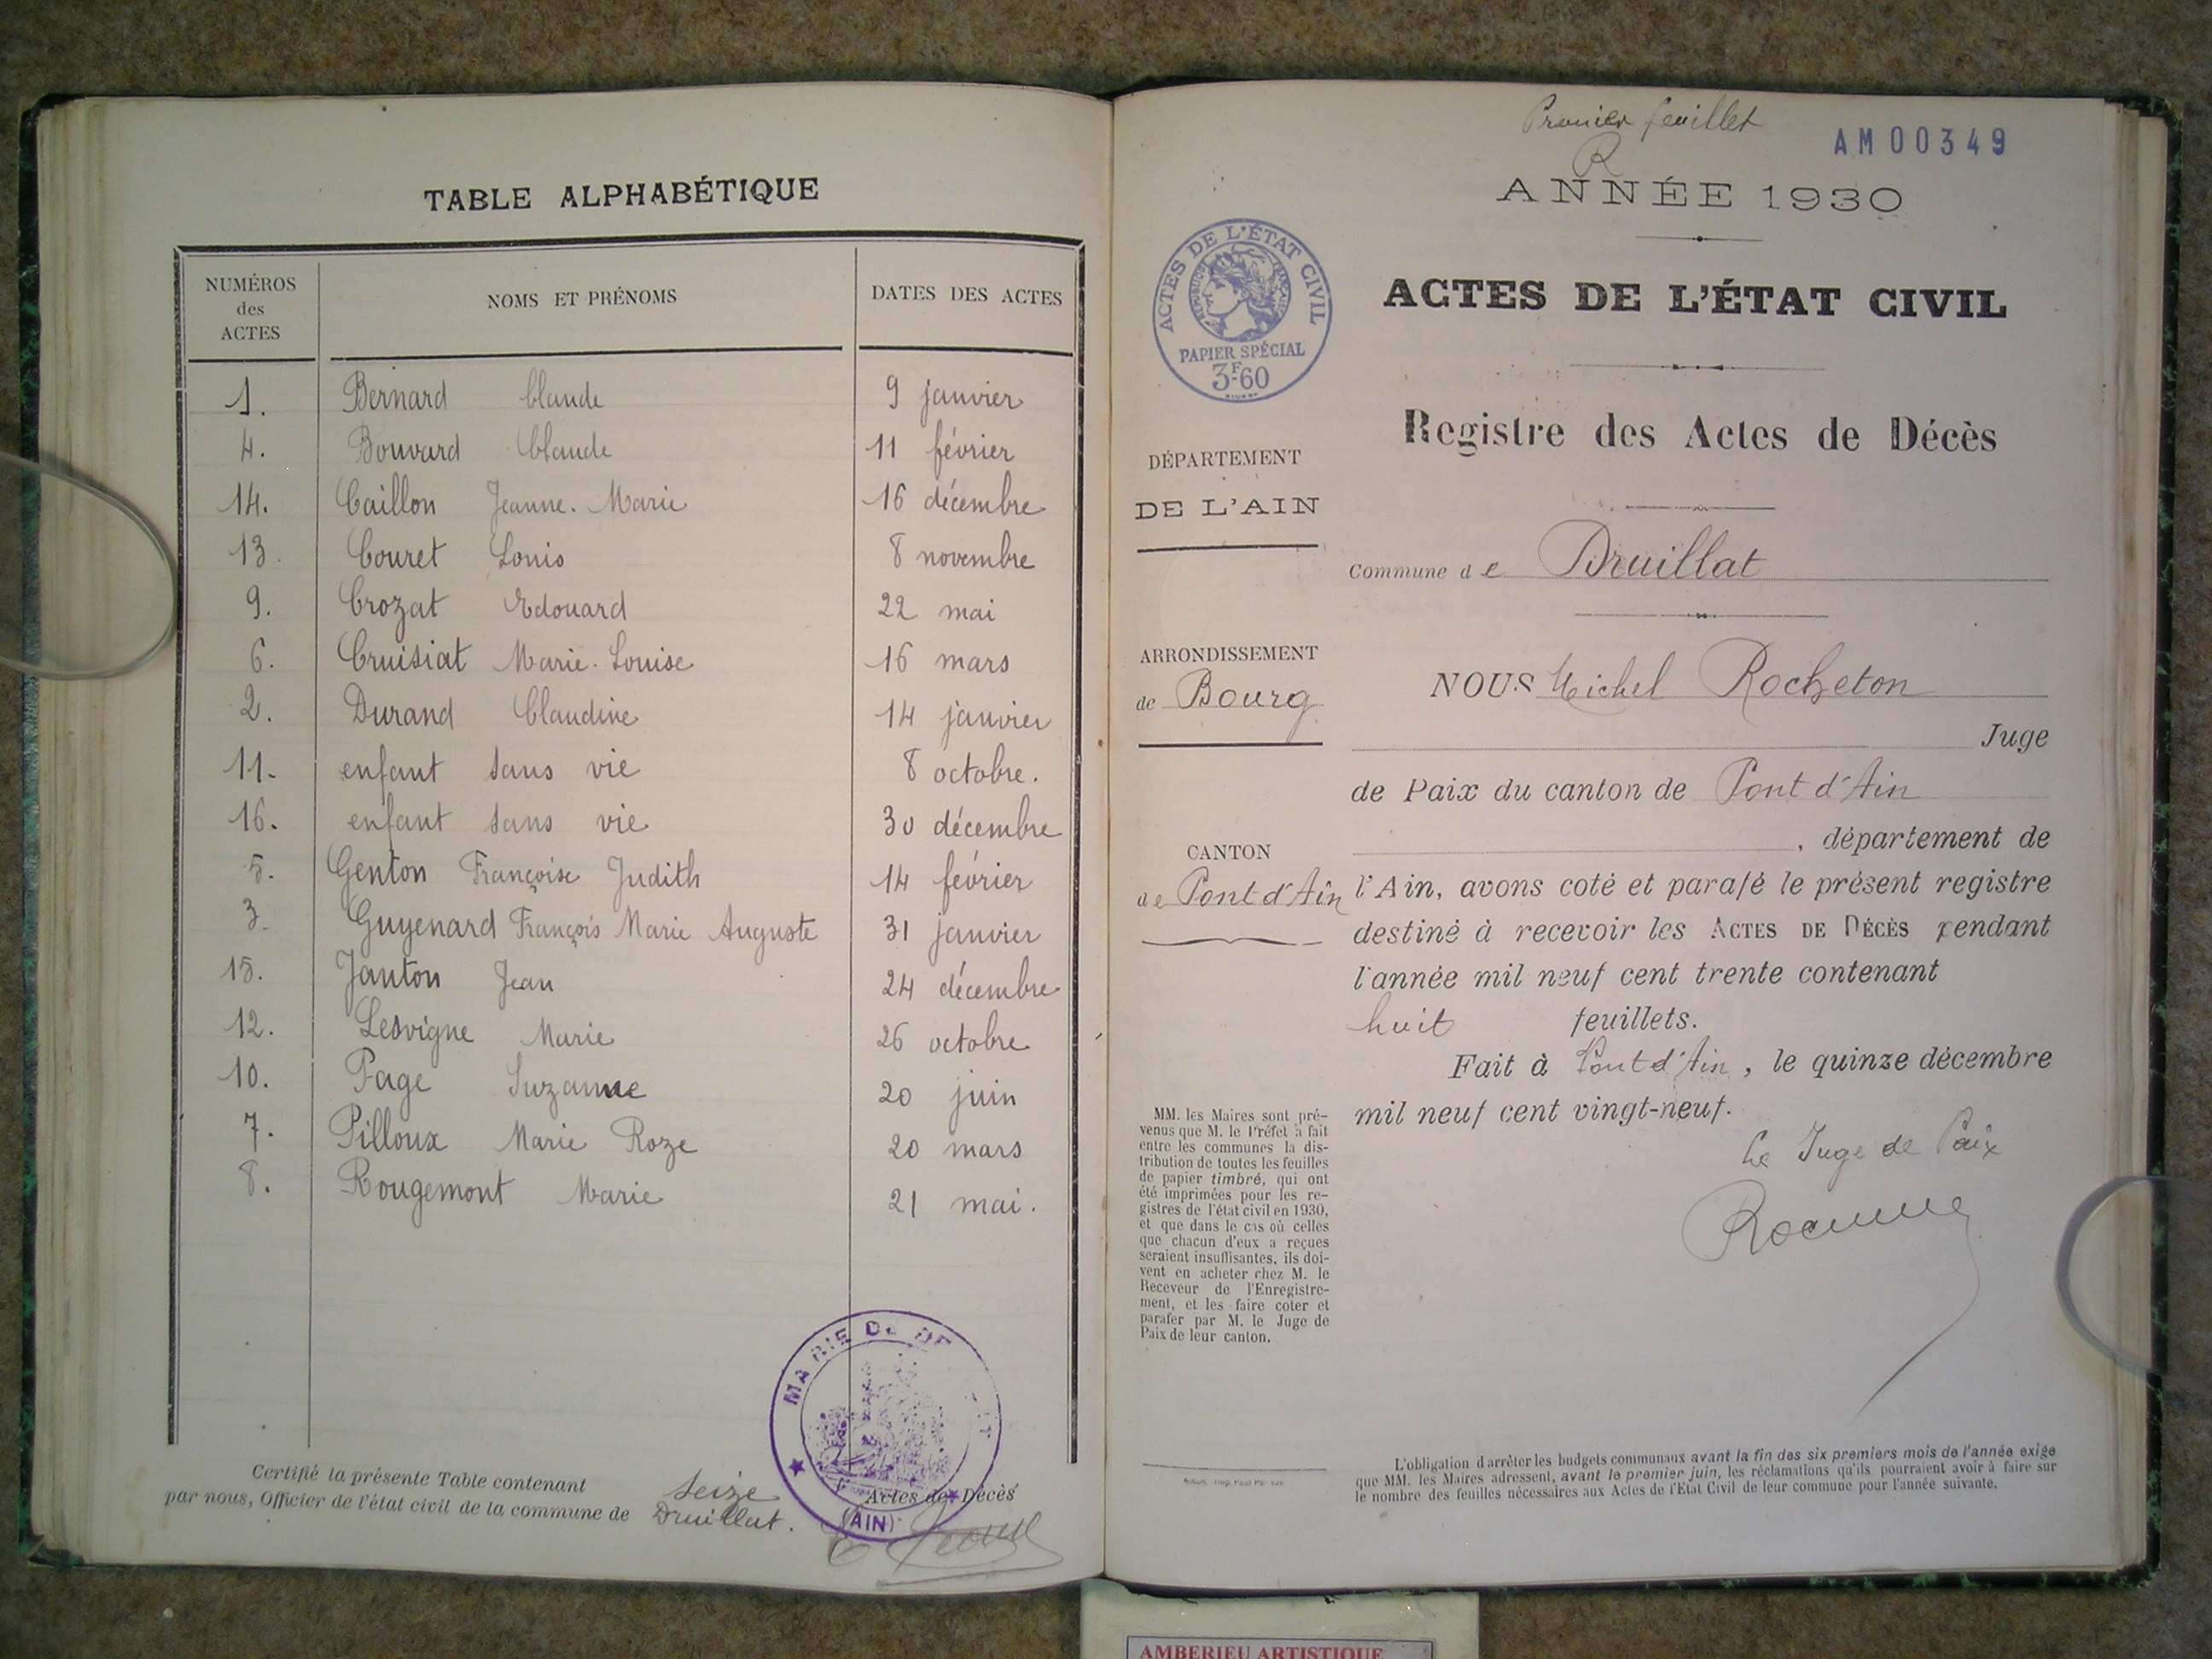 TABLE ALPHABÉTIQUE
NUMÉROS des ACTES NOMS ET PRÉNOMS DATES DES ACTES
1. Bernard Claude 9 janvier
4. Bouvard Claude 11 février
14. Caillon Jeanne-Marie 16 décembre
13. Couret Louis 8 novembre
9. Crozat Edouard 22 mai
6. Cruisiat Marie-Louise 16 mars
2. Durand Claudine 14 janvier
11. enfant sans vie 8 octobre.
16. enfant sans vie 30 décembre
5. Genton Françoise Judith 14 février
3. Guyenard François Marie Auguste 31 janvier
15. Janton Jean 24 décembre
12. Lesvigne Marie 26 octobre
10. Page Suzanne 20 juin
7. Pilloux Marie Roze 20 mars
8. Rougemont Marie 21 mai.
MAIRIE DE
(AIN)
Certifié la présente Table contenant seize Actes de Décès
par nous, Officier de l'état civil de la commune de Druillat.
Premier feuillet
R
AM00349
ANNÉE 1930
ACTES DE L'ÉTAT CIVIL
RÉPUBLIQUE FRANÇAISE
PAPIER SPÉCIAL
3F.60
ACTES DE L'ÉTAT CIVIL
Registre des Actes de Décès
DÉPARTEMENT
DE L'AIN
Commune de Druillat
ARRONDISSEMENT
de Bourg
CANTON
de Pont d'Ain
NOUS Michel Rocheton
Juge
de Paix du canton de Pont d'Ain
, département de
l'Ain, avons coté et parafé le présent registre
destiné à recevoir les ACTES DE DÉCÈS pendant
l'année mil neuf cent trente contenant
huit feuillets.
Fait à Pont d'Ain, le quinze décembre
mil neuf cent vingt-neuf.
Le Juge de Paix
MM. les Maires sont pré-
venus que M. le Préfet a fait
entre les communes la dis-
tribution de toutes les feuilles
de papier timbré, qui ont
été imprimées pour les re-
gistres de l'état civil en 1930,
et que dans le cas où celles
que chacun d'eux a reçues
seraient insuffisantes, ils doi-
vent en acheter chez M. le
Receveur de l'Enregistre-
ment, et les faire coter et
parafer par M. le Juge de
Paix de leur canton.
L'obligation d'arrêter les budgets communaux avant la fin des six premiers mois de l'année exige
que MM. les Maires adressent, avant le premier juin, les réclamations qu'ils pourraient avoir à faire sur
le nombre des feuilles nécessaires aux Actes de l'État Civil de leur commune pour l'année suivante.
AMBERIEU ARTISTIQUE